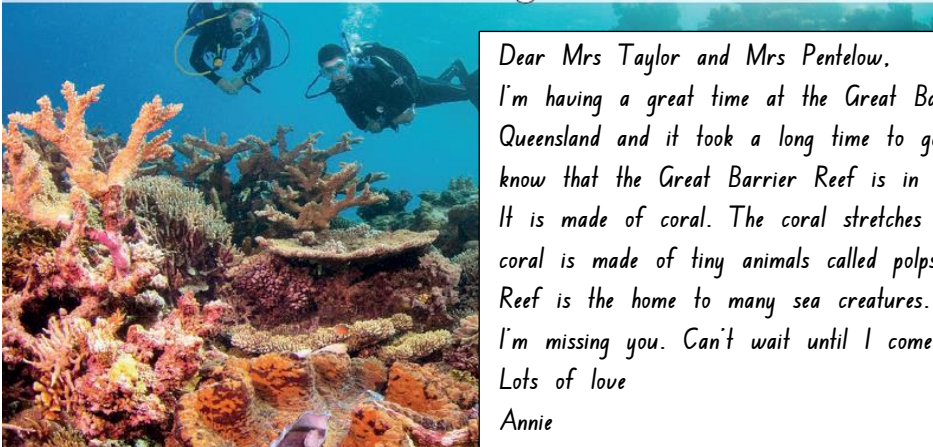 Dear Mrs Taylor and Mrs Pentelow,
I'm having a great time at the Great
Queensland and it took a long time to
know that the Great Barrier Reef is in
It is made of coral. The coral stretches
coral is made of tiny animals called polps
Reef is the home to many sea creatures.
I'm missing you. Can't wait until I come
Lots of love
Annie